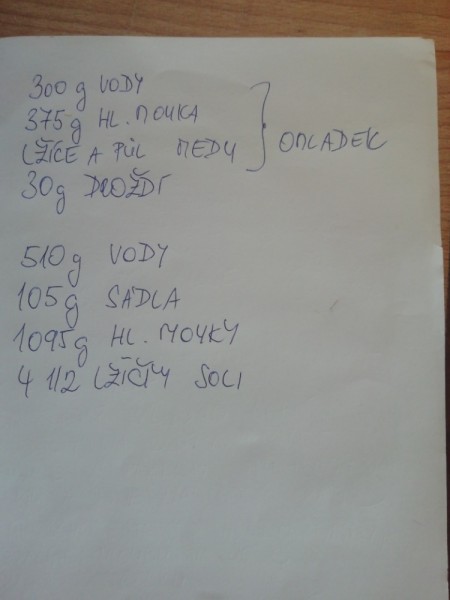 300g VODY
375g HL. MOUKA
LŽÍCE A PŮL MEDU
30g DROŽDÍ
OMLADEK
510g VODY
105g SÁDLA
1095g HL. MOUKY
4 1/2 LŽIČKY SOLI